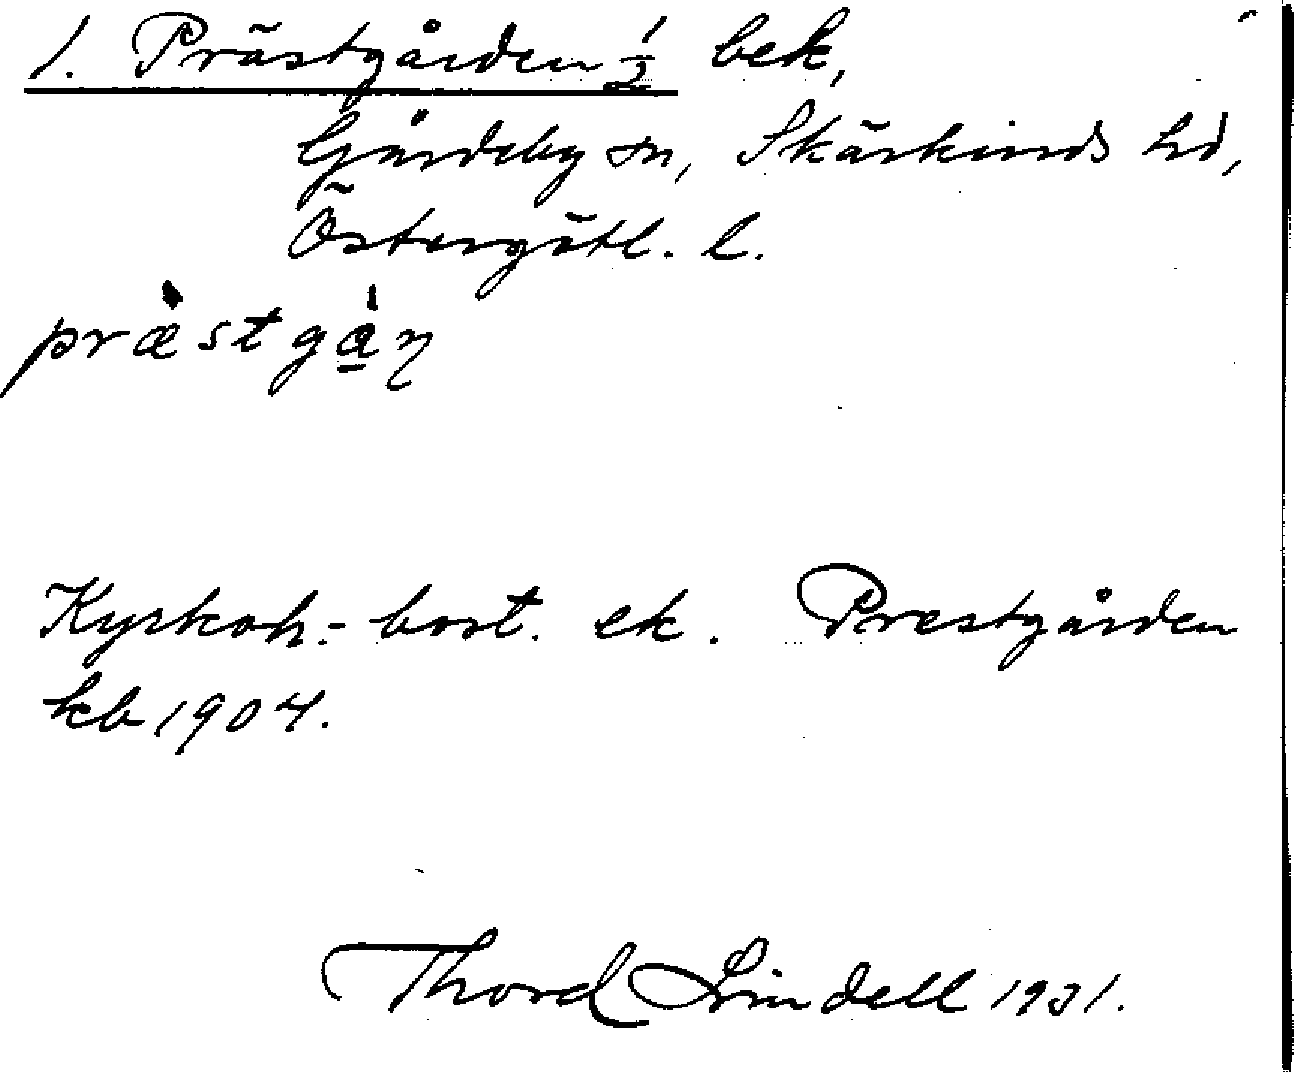 1. Prästgården 1/2 bek,
Gårdeby sn, Skärkinds hd,
Östergötl. l.
præ̀stgà̱ɳ
Kyrkoh:- bost. ek. Prestgården
kb 1904.
Thord Lindell 1931.